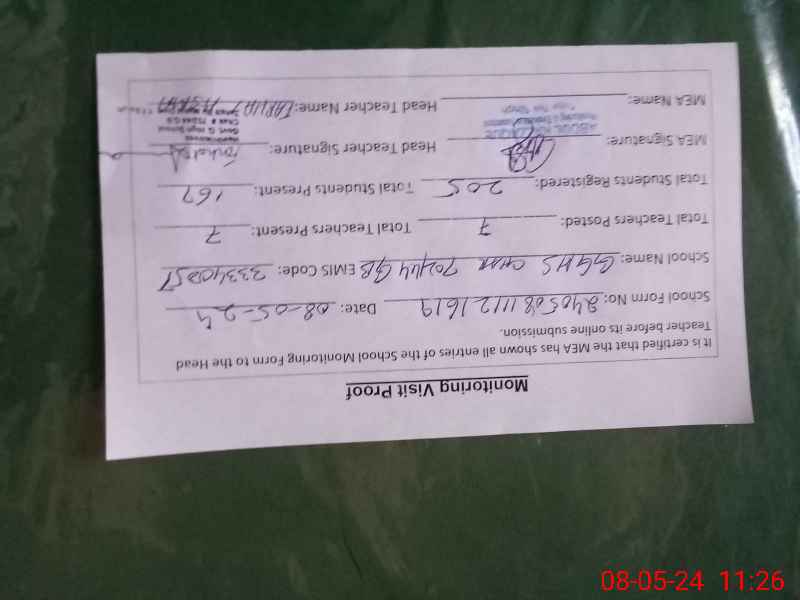 Monitoring Visit Proof
It is certified that the MEA has shown all entries of the School Monitoring Form to the Head
Teacher before its online submission.
School Form No: 24050811121619 Date: 08-05-24
School Name: GGHS CHAK 702/44 GB EMIS Code: 33340051
Total Teachers Posted: 7 Total Teachers Present: 7
Total Students Registered: 205 Total Students Present: 167
MEA Signature: Head Teacher Signature:
MEA Name: Head Teacher Name:
Govt. G. High School
08-05-24 11:26